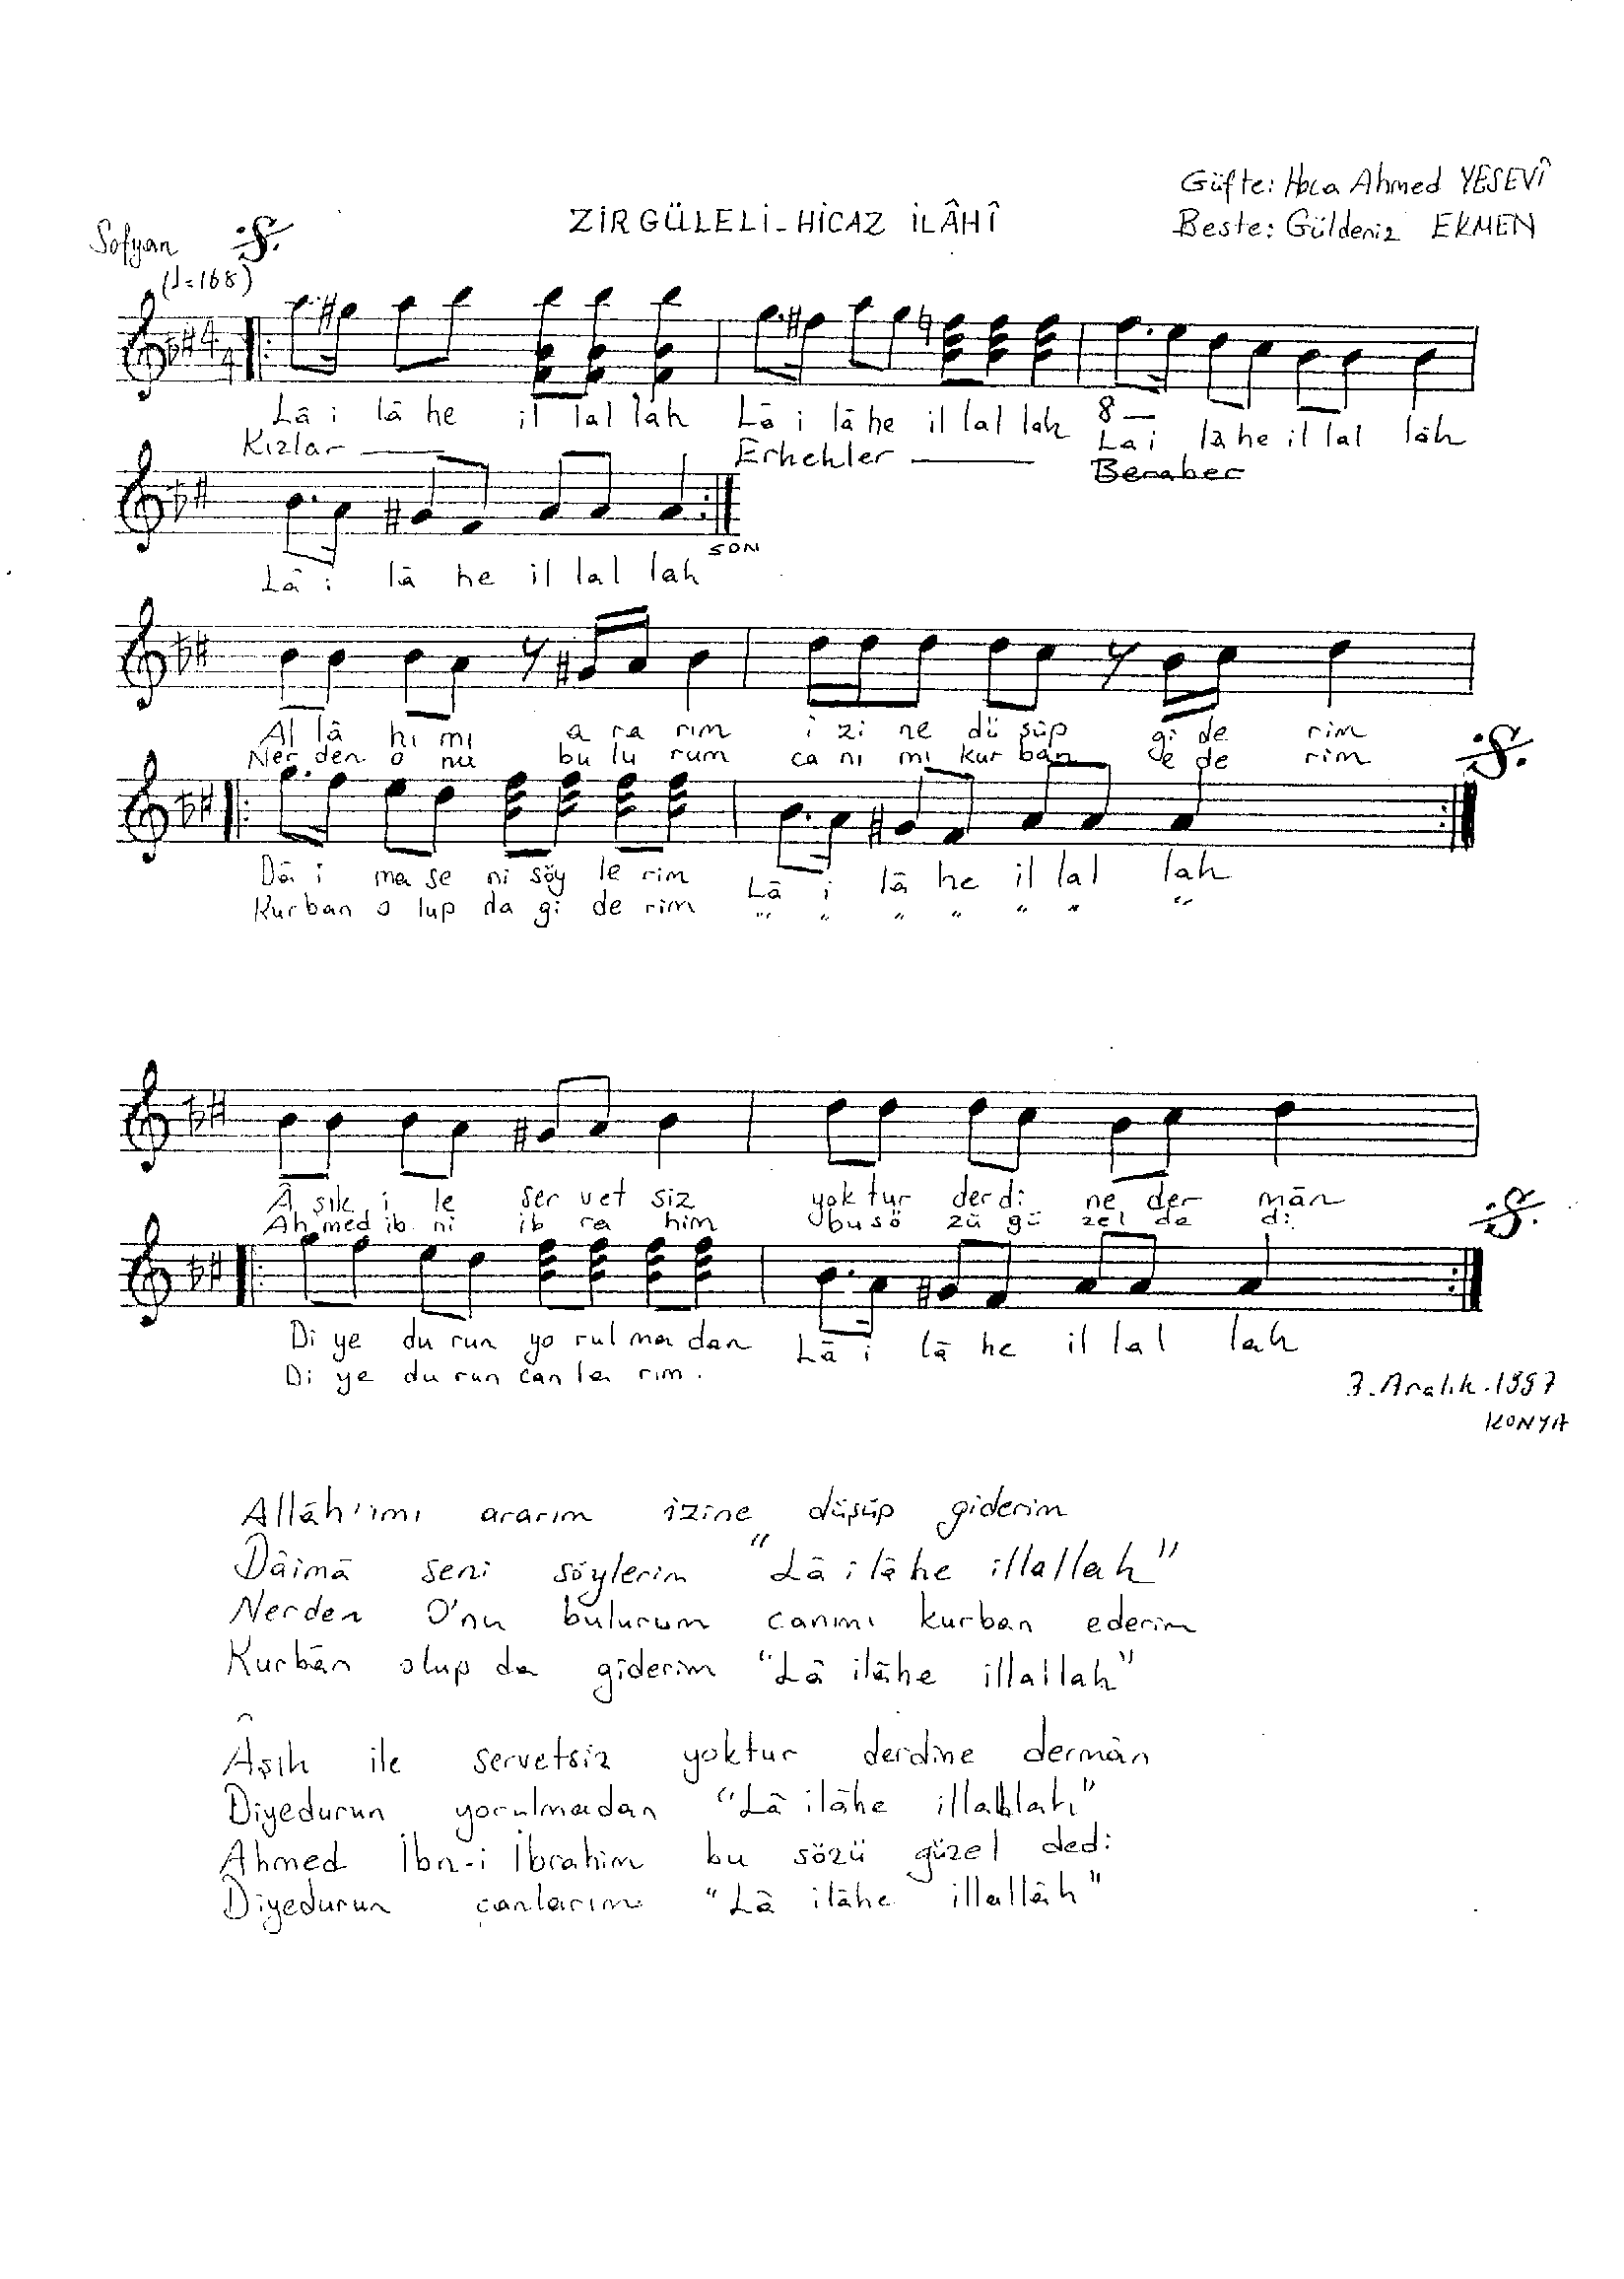 Güfte: Hoca Ahmed YESEVÎ
ZİRGÜLELİ-HİCAZ İLÂHÎ
Beste: Güldeniz EKMEN
Sofyan
(♩=168)
4
4
Lâ i lâ he il lal lah Lâ i lâ he il lal lah 8— La i lâ he il lal lâh
Kızlar —— Erkekler —— Beraber
SON
Lâ i lâ he il lal lah
Al lâ hı mı a ra rım i zi ne dü şüp gi de rim
Ner den o nu bu lu rum ca nı mı kur ban e de rim
Dâ i ma se ni söy le rim Lâ i lâ he il lal lah
Kurban o lup da gi de rim " " " " " " "
Â şık i le ser vet siz yok tur derdi ne der mân
Ah med ib ni ib ra him bu sö zü gü zel de di
Di ye du run yo rul ma dan Lâ i lâ he il lal lah
Di ye du run can la rım.
7.Aralık.1997
KONYA
Allâh'ımı ararım izine düşüp giderim
Dâimâ seni söylerim "Lâ ilâhe illallah"
Nerden O'nu bulurum canımı kurban ederim
Kurbân olup da giderim "Lâ ilâhe illallah"
Âşık ile servetsiz yoktur derdine dermân
Diyedurun yorulmadan "Lâ ilâhe illallah"
Ahmed İbn-i İbrahim bu sözü güzel dedi
Diyedurun canlarım "Lâ ilâhe illallâh"